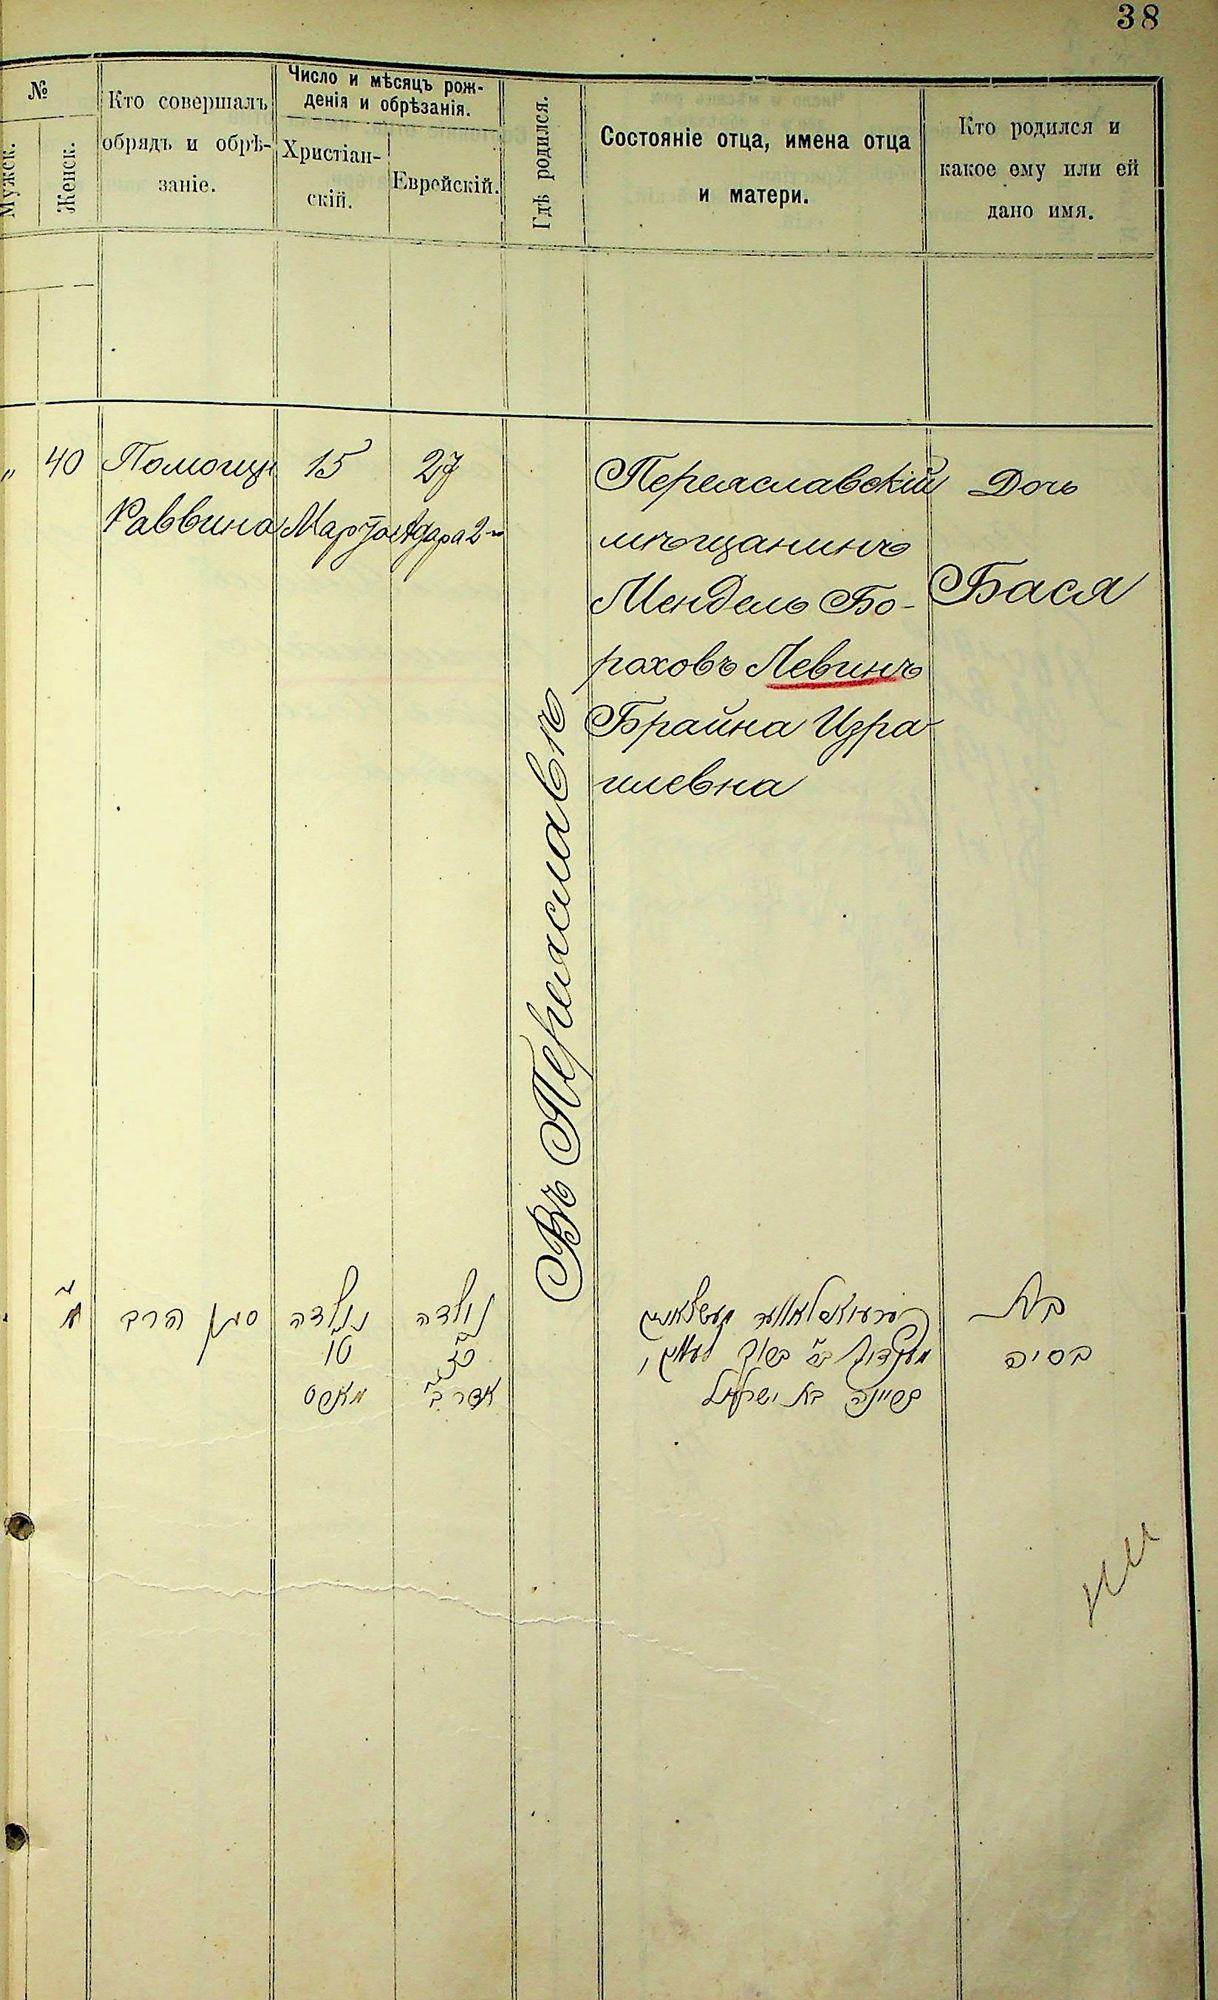 38
№
Мужск.
Женск.
Кто совершалъ
обрядъ и обрѣ-
заніе.
Число и мѣсяцъ рож-
денія и обрѣзанія.
Христіан-
скій.
Еврейскій.
Гдѣ родился.
Состояніе отца, имена отца
и матери.
Кто родился и
какое ему или ей
дано имя.
„ 40
Помощн
Раввина
15
Марта
27
Адара 2-го
Въ Переяславѣ
Переяславскій
мѣщанинъ
Мендель Бо-
роховъ Левинъ
Брайна Изра
илевна
Дочь
Бася
מ
סגן הרב
נולדה
טו
מארט
נולדה
כז
אדר ב
בת
בסיה
בריינה בת ישראל